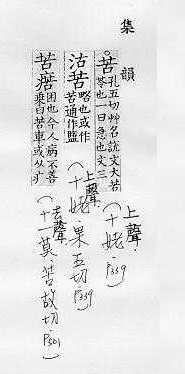 集韻
苦孔五切艸名說文大苦
苓也一曰急也文三
上聲.
(十姥.P339)
沽苦略也或作
苦通作盬
上聲.
(十姥.果五切.P339)
苦困也今人病不善
乘曰苦車或从疒
去聲.
(十一莫.苦故切.P501)